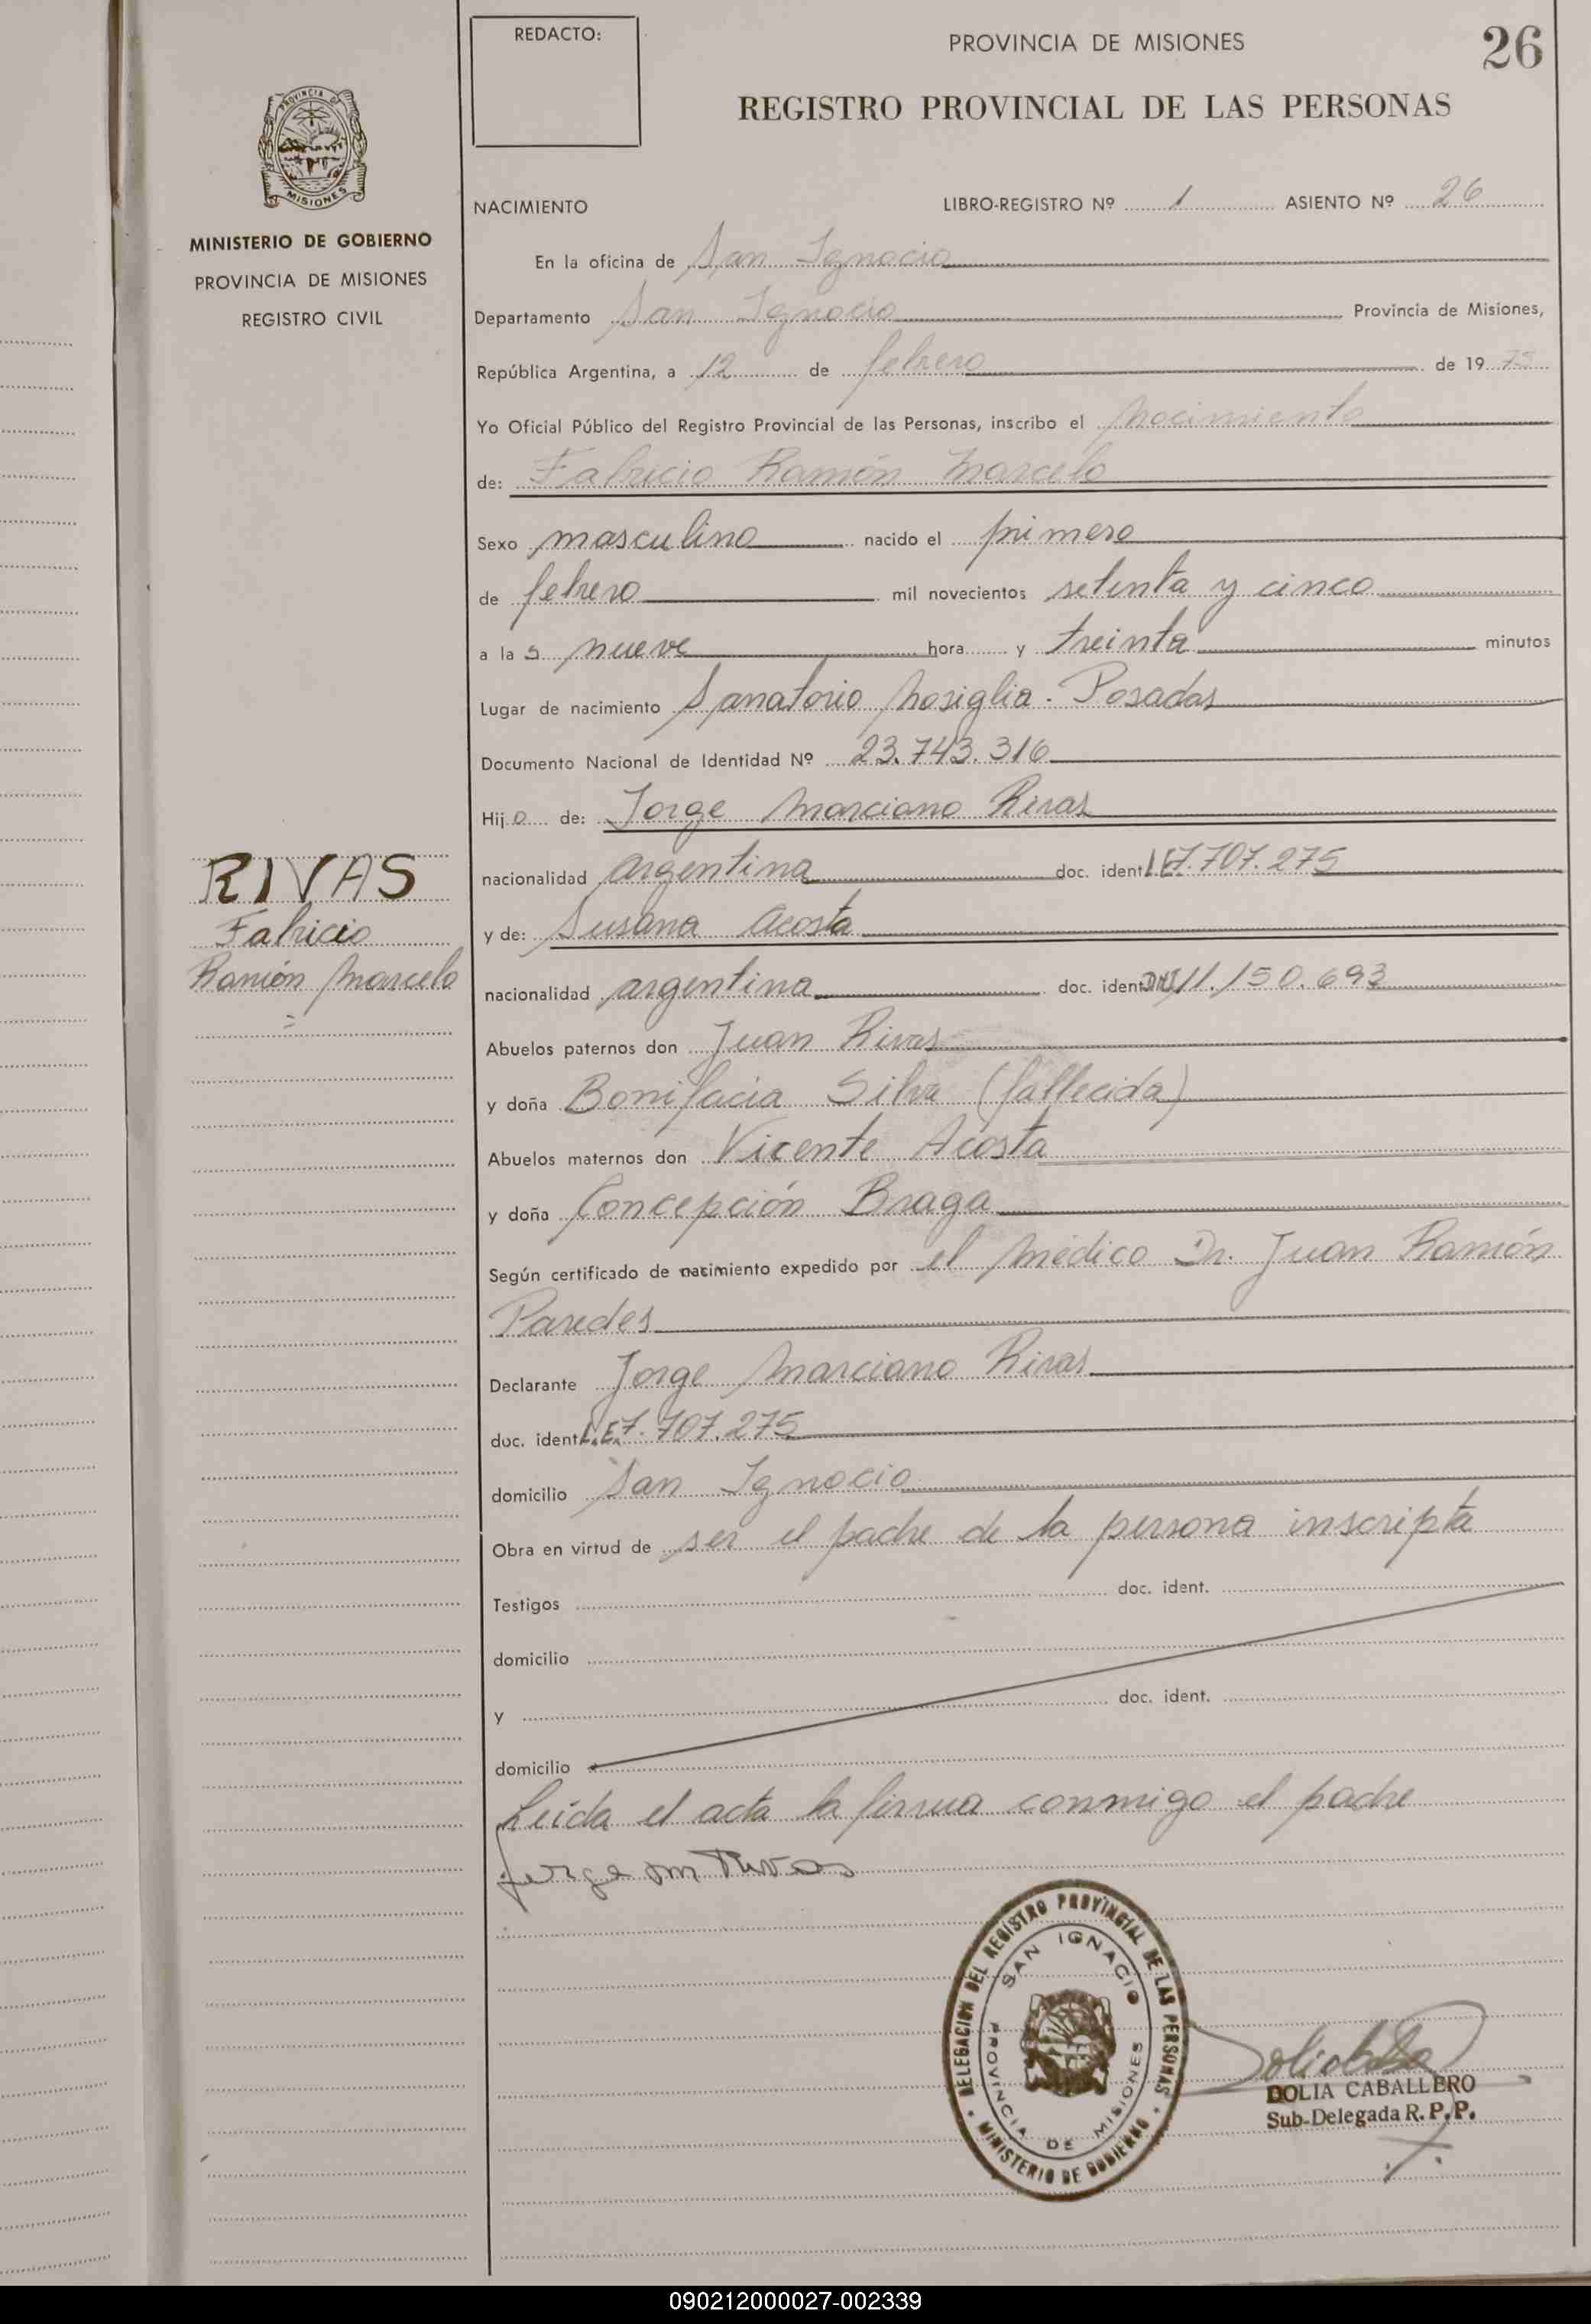 REDACTO:
PROVINCIA DE MISIONES
26
REGISTRO PROVINCIAL DE LAS PERSONAS
PROVINCIA DE
MISIONES
MINISTERIO DE GOBIERNO
PROVINCIA DE MISIONES
REGISTRO CIVIL
NACIMIENTO LIBRO-REGISTRO Nº 1 ASIENTO Nº 26
En la oficina de San Ignacio
Departamento San Ignacio Provincia de Misiones,
República Argentina, a 12 de febrero de 1975
Yo Oficial Público del Registro Provincial de las Personas, inscribo el nacimiento
de: Fabricio Ramón Marcelo
Sexo masculino nacido el primero
de febrero mil novecientos setenta y cinco
a las nueve hora y treinta minutos
Lugar de nacimiento Sanatorio Nosiglia - Posadas
Documento Nacional de Identidad Nº 23.743.316
Hijo de: Jorge Marciano Rivas
nacionalidad argentina doc. ident. L.E. 7.707.275
y de: Susana Acosta
nacionalidad argentina doc. ident. DNI 11.150.693
Abuelos paternos don Juan Rivas
y doña Bonifacia Silva (fallecida)
Abuelos maternos don Vicente Acosta
y doña Concepción Braga
Según certificado de nacimiento expedido por el médico Dr. Juan Ramón
Paredes
Declarante Jorge Marciano Rivas
doc. ident. L.E. 7.707.275
domicilio San Ignacio
Obra en virtud de ser el padre de la persona inscripta
Testigos doc. ident.
domicilio
y doc. ident.
domicilio
Leída el acta la firma conmigo el padre
Jorge M Rivas
RIVAS
Fabricio
Ramón Marcelo
DELEGACION DEL REGISTRO PROVINCIAL DE LAS PERSONAS
MINISTERIO DE GOBIERNO
SAN IGNACIO
PROVINCIA DE MISIONES
DOLIA CABALLERO
Sub-Delegada R.P.P.
090212000027-002339